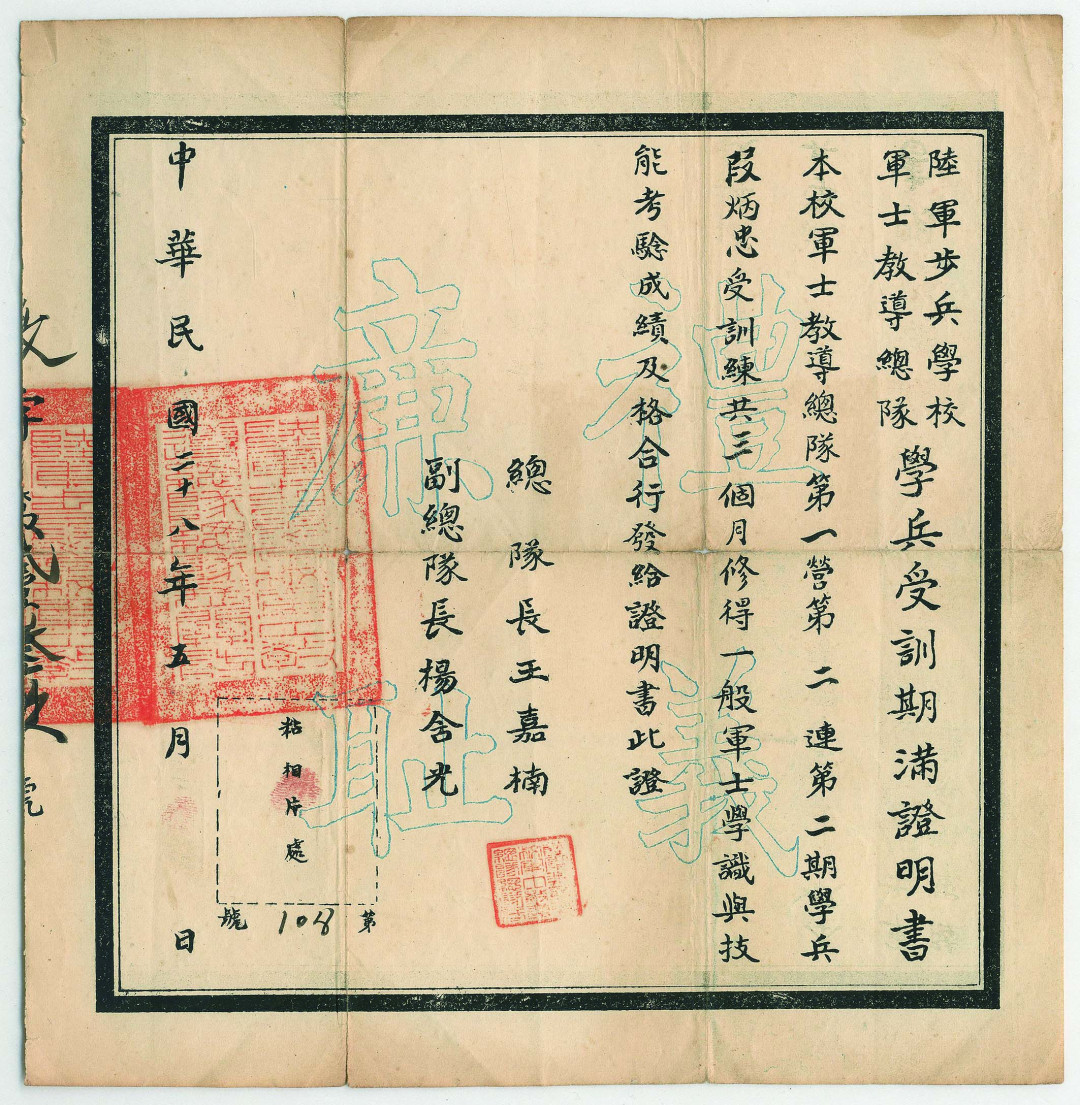 陸軍步兵學校
軍士教導總隊
學兵受訓期滿證明書
本校軍士教導總隊第一營第二連第二期學兵
段炳忠受訓練共三個月修得一般軍士學識與技
能考驗成績及格合行發給證明書此證
總隊長王嘉楠
副總隊長楊舍光
中華民國二十八年五月 日
粘相片處
第108號
禮義
廉恥